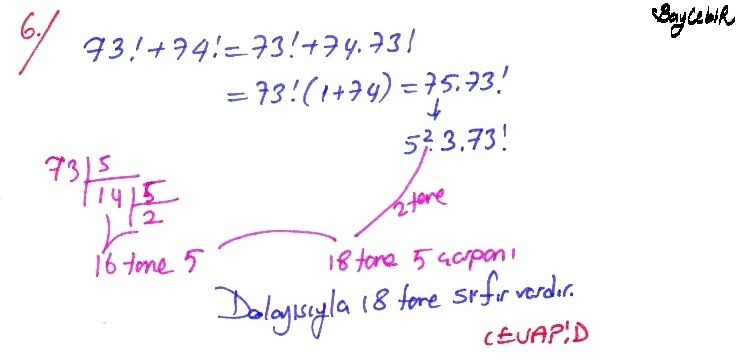 BayCebiR
6.) 73!+74!=73!+74.73!
=73!(1+74)=75.73!
↓
5².3.73!
73|5
14|5
2
2 tane
16 tane 5 18 tane 5 çarpanı
Dolayısıyla 18 tane sıfır vardır.
CEVAP:D